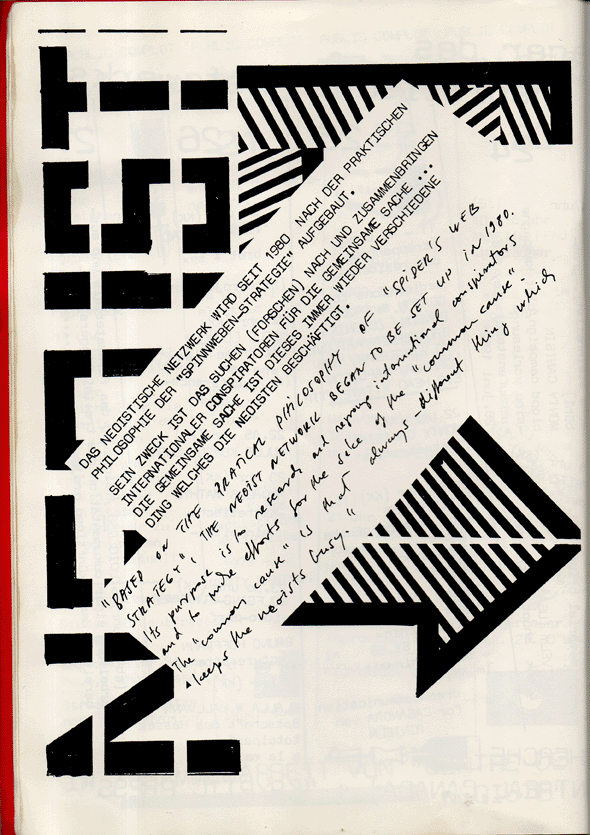 NEOIST
DAS NEOISTISCHE NETZWERK WIRD SEIT 1980 NACH DER PRAKTISCHEN
PHILOSOPHIE DER "SPINNWEBEN-STRATEGIE" AUFGEBAUT.
SEIN ZWECK IST DAS SUCHEN (FORSCHEN) NACH UND ZUSAMMENBRINGEN
INTERNATIONALER CONSPIRATOREN FÜR DIE GEMEINSAME SACHE ...
DIE GEMEINSAME SACHE IST DIESES IMMER WIEDER VERSCHIEDENE
DING WELCHES DIE NEOISTEN BESCHÄFTIGT.
"BASED ON THE PRATICAL PHILOSOPHY OF "SPIDER'S WEB
STRATEGY", THE NEOIST NETWORK BEGAN TO BE SET UP IN 1980.
Its purpose is to research and regroup international conspirators
and to efforts for the sake of the "common cause".
The "common cause" is that always-different thing which
keeps the neoists busy."